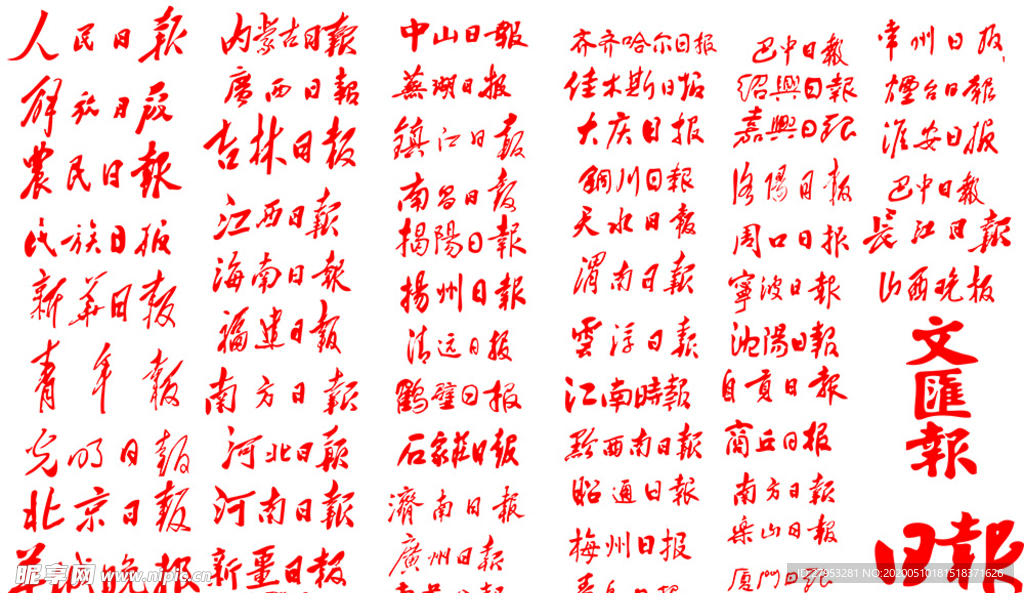 人民日報
解放日报
農民日報
民族日报
新華日報
青年報
光明日報
北京日報
羊城晚报
内蒙古日報
廣西日報
吉林日報
江西日報
海南日報
福建日報
南方日報
河北日報
河南日報
新疆日报
中山日報
蕪湖日报
鎮江日報
南昌日報
揭陽日報
揚州日報
清远日报
鶴壁日报
石家莊日報
濟南日報
廣州日報
齐齐哈尔日报
佳木斯日报
大庆日报
铜川日報
天水日報
渭南日報
雲浮日報
江南時報
黔西南日報
昭通日報
梅州日报
巴中日報
紹興日報
嘉興日报
洛陽日报
周口日报
寧波日報
沈陽日報
自贡日報
商丘日报
南方日報
乐山日報
厦门日报
常州日报
煙台日報
淮安日报
巴中日報
長江日報
山西晚报
文
匯
報
日報
昵享网 www.nipic.cn
ID:27953281 NO:20200510181518371626